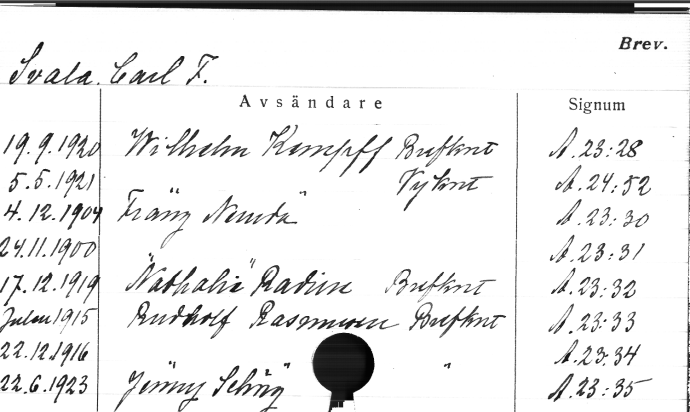 Brev.
Svala. Carl F.
Avsändare Signum
19.9.1920 Wilhelm Kempff Brefkort A.23:28
5.5.1921 Vykort A.24:52
4.12.1904 Franz Neruda A.23:30
24.11.1900 " " A.23:31
17.12.1919 "Nathalie" Radin Brefkort A.23:32
Julen 1915 Rudholf Rasmussen Brefkort A.23:33
22.12.1916 " " " A.23:34
22.6.1923 Jenny A.23:35